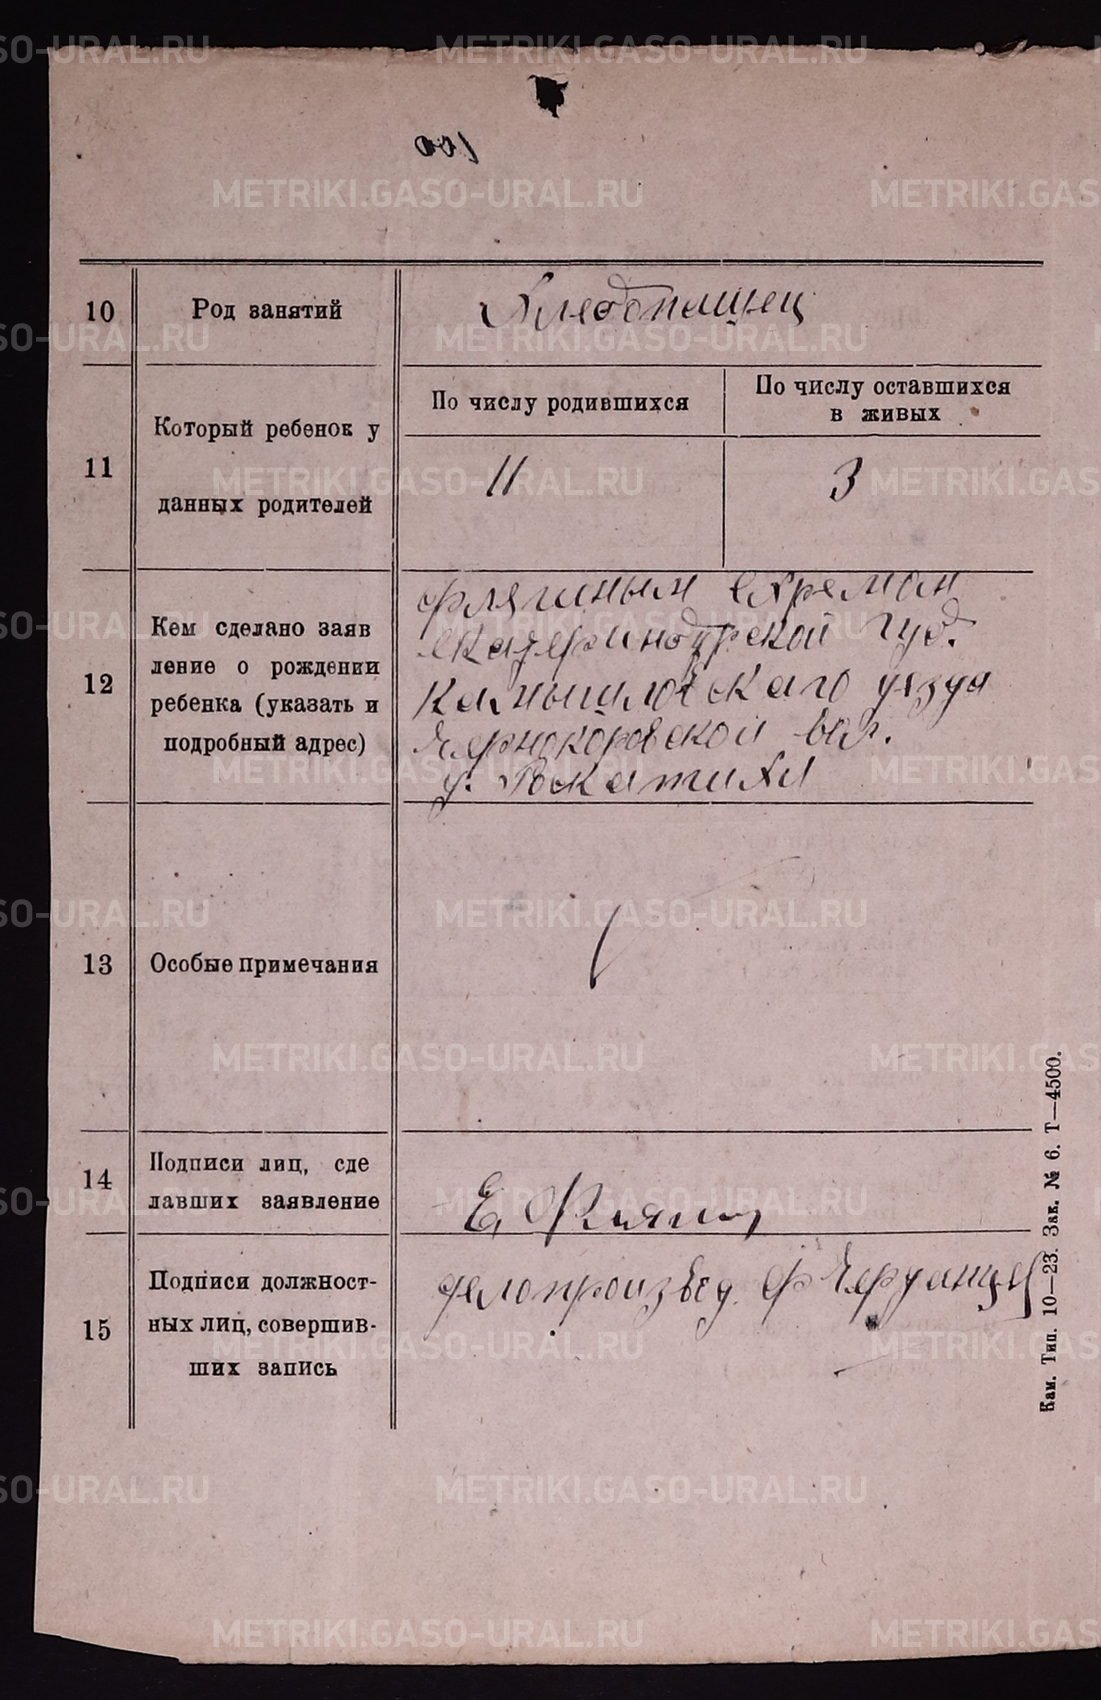 100
10
Род занятий
Хлебопашец
11
Который ребенок у
данных родителей
По числу родившихся
По числу оставшихся
в живых
11
3
12
Кем сделано заяв
ление о рождении
ребенка (указать и
подробный адрес)
Флягиным
Екатеринбургской Губ.
Камышловскаго уезда
Чернокоровской вол.
13
Особые примечания
14
Подписи лиц, сде
лавших заявление
Е. Флягин
15
Подписи должност-
ных лиц, совершив-
ших запись
делопроизвед.
Кам. Тип. 10—23. Зак. № 6. Т—4500.
METRIKI.GASO-URAL.RU